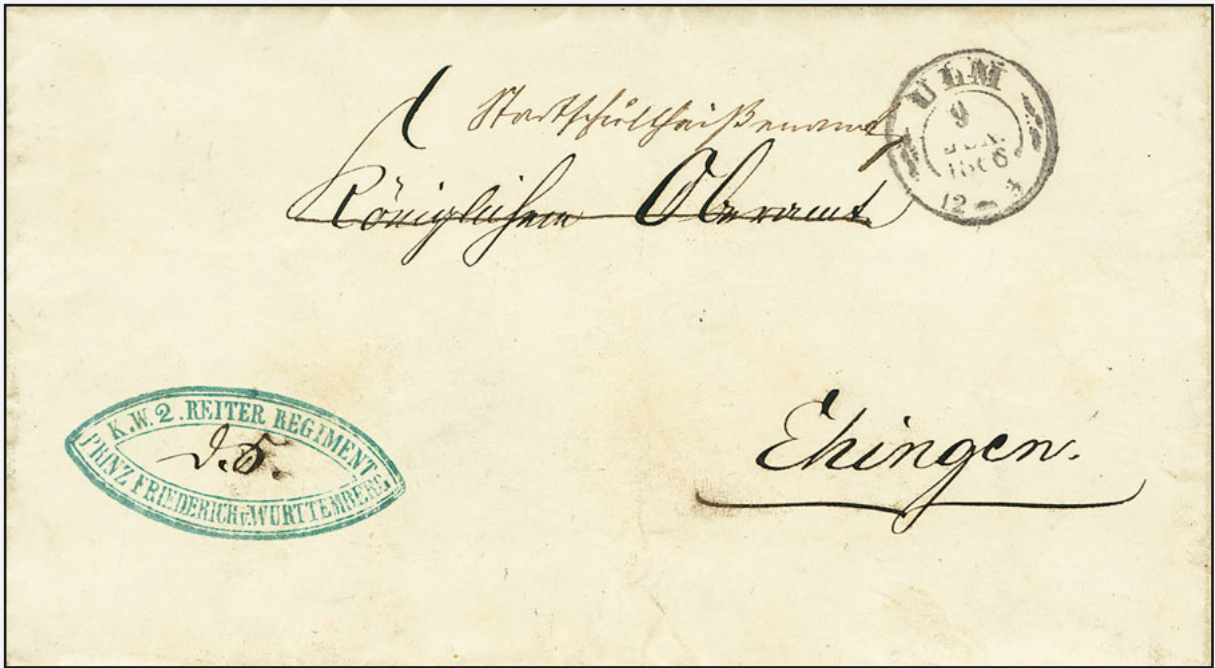 Stadtschultheißenamt
Königlichem Oberamt
ULM
9
1866
12 - 
K.W. 2. REITER REGIMENT
PRINZ FRIEDERICH v. WÜRTTEMBERG
Ehingen.